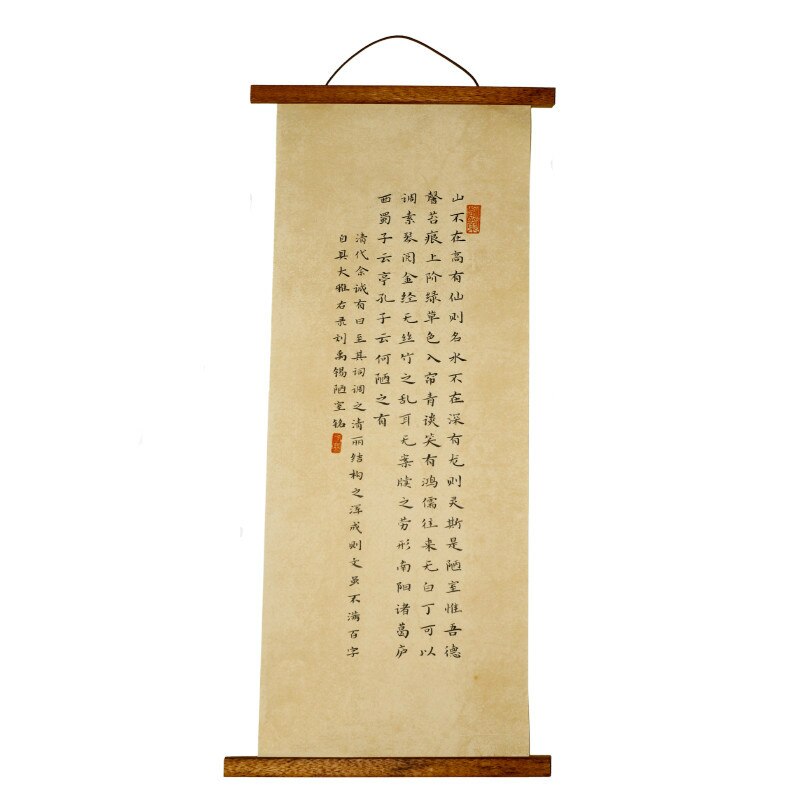 山不在高有仙则名水不在深有龙则灵斯是陋室惟吾德
馨苔痕上阶绿草色入帘青谈笑有鸿儒往来无白丁可以
调素琴阅金经无丝竹之乱耳无案牍之劳形南阳诸葛庐
西蜀子云亭孔子云何陋之有
清代余诚有曰至其词调之清丽结构之浑成则文虽不满百字
自具大雅右录刘禹锡陋室铭